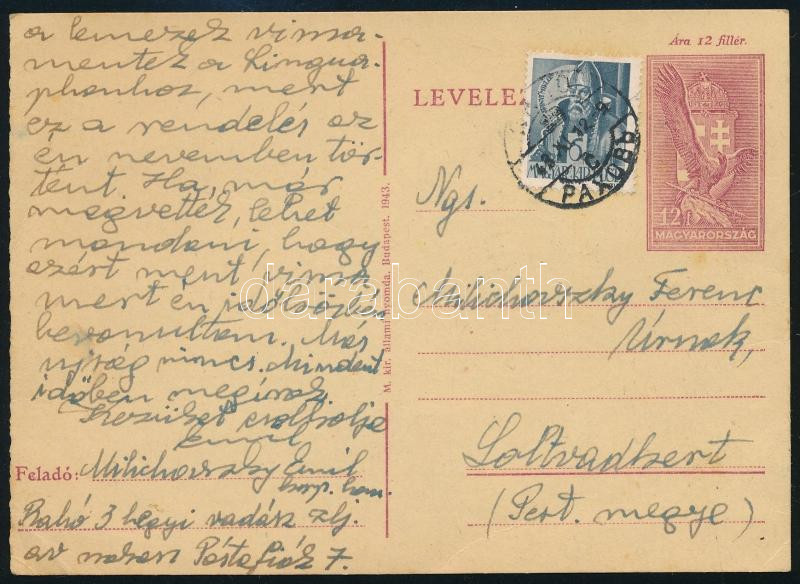 a lemezek vissza-
mentek a Lingua-
phonhoz, mert
ez a rendelés az
én nevemben tör-
tent. Ha, már
megvettek, lehet
mondani, hogy
azért ment vissza
mert én időközben
bevonultam. Más
ujság nincs. Mindent
időben megírok.
Kezüket csókolja
Emil
Feladó: Milichovszky Emil
karp. hon.
Rahó 3 hegyi vadász zlj.
Postafiók 7.
M. kir. állami nyomda. Budapest. 1943.
Ára 12 fillér.
LEVELE
MAGYAR KIR.
12 f
MAGYARORSZÁG
Ngs.
Milichovszky Ferenc
Úrnak,
Soltvadkert
(Pest. megye)
darabanth